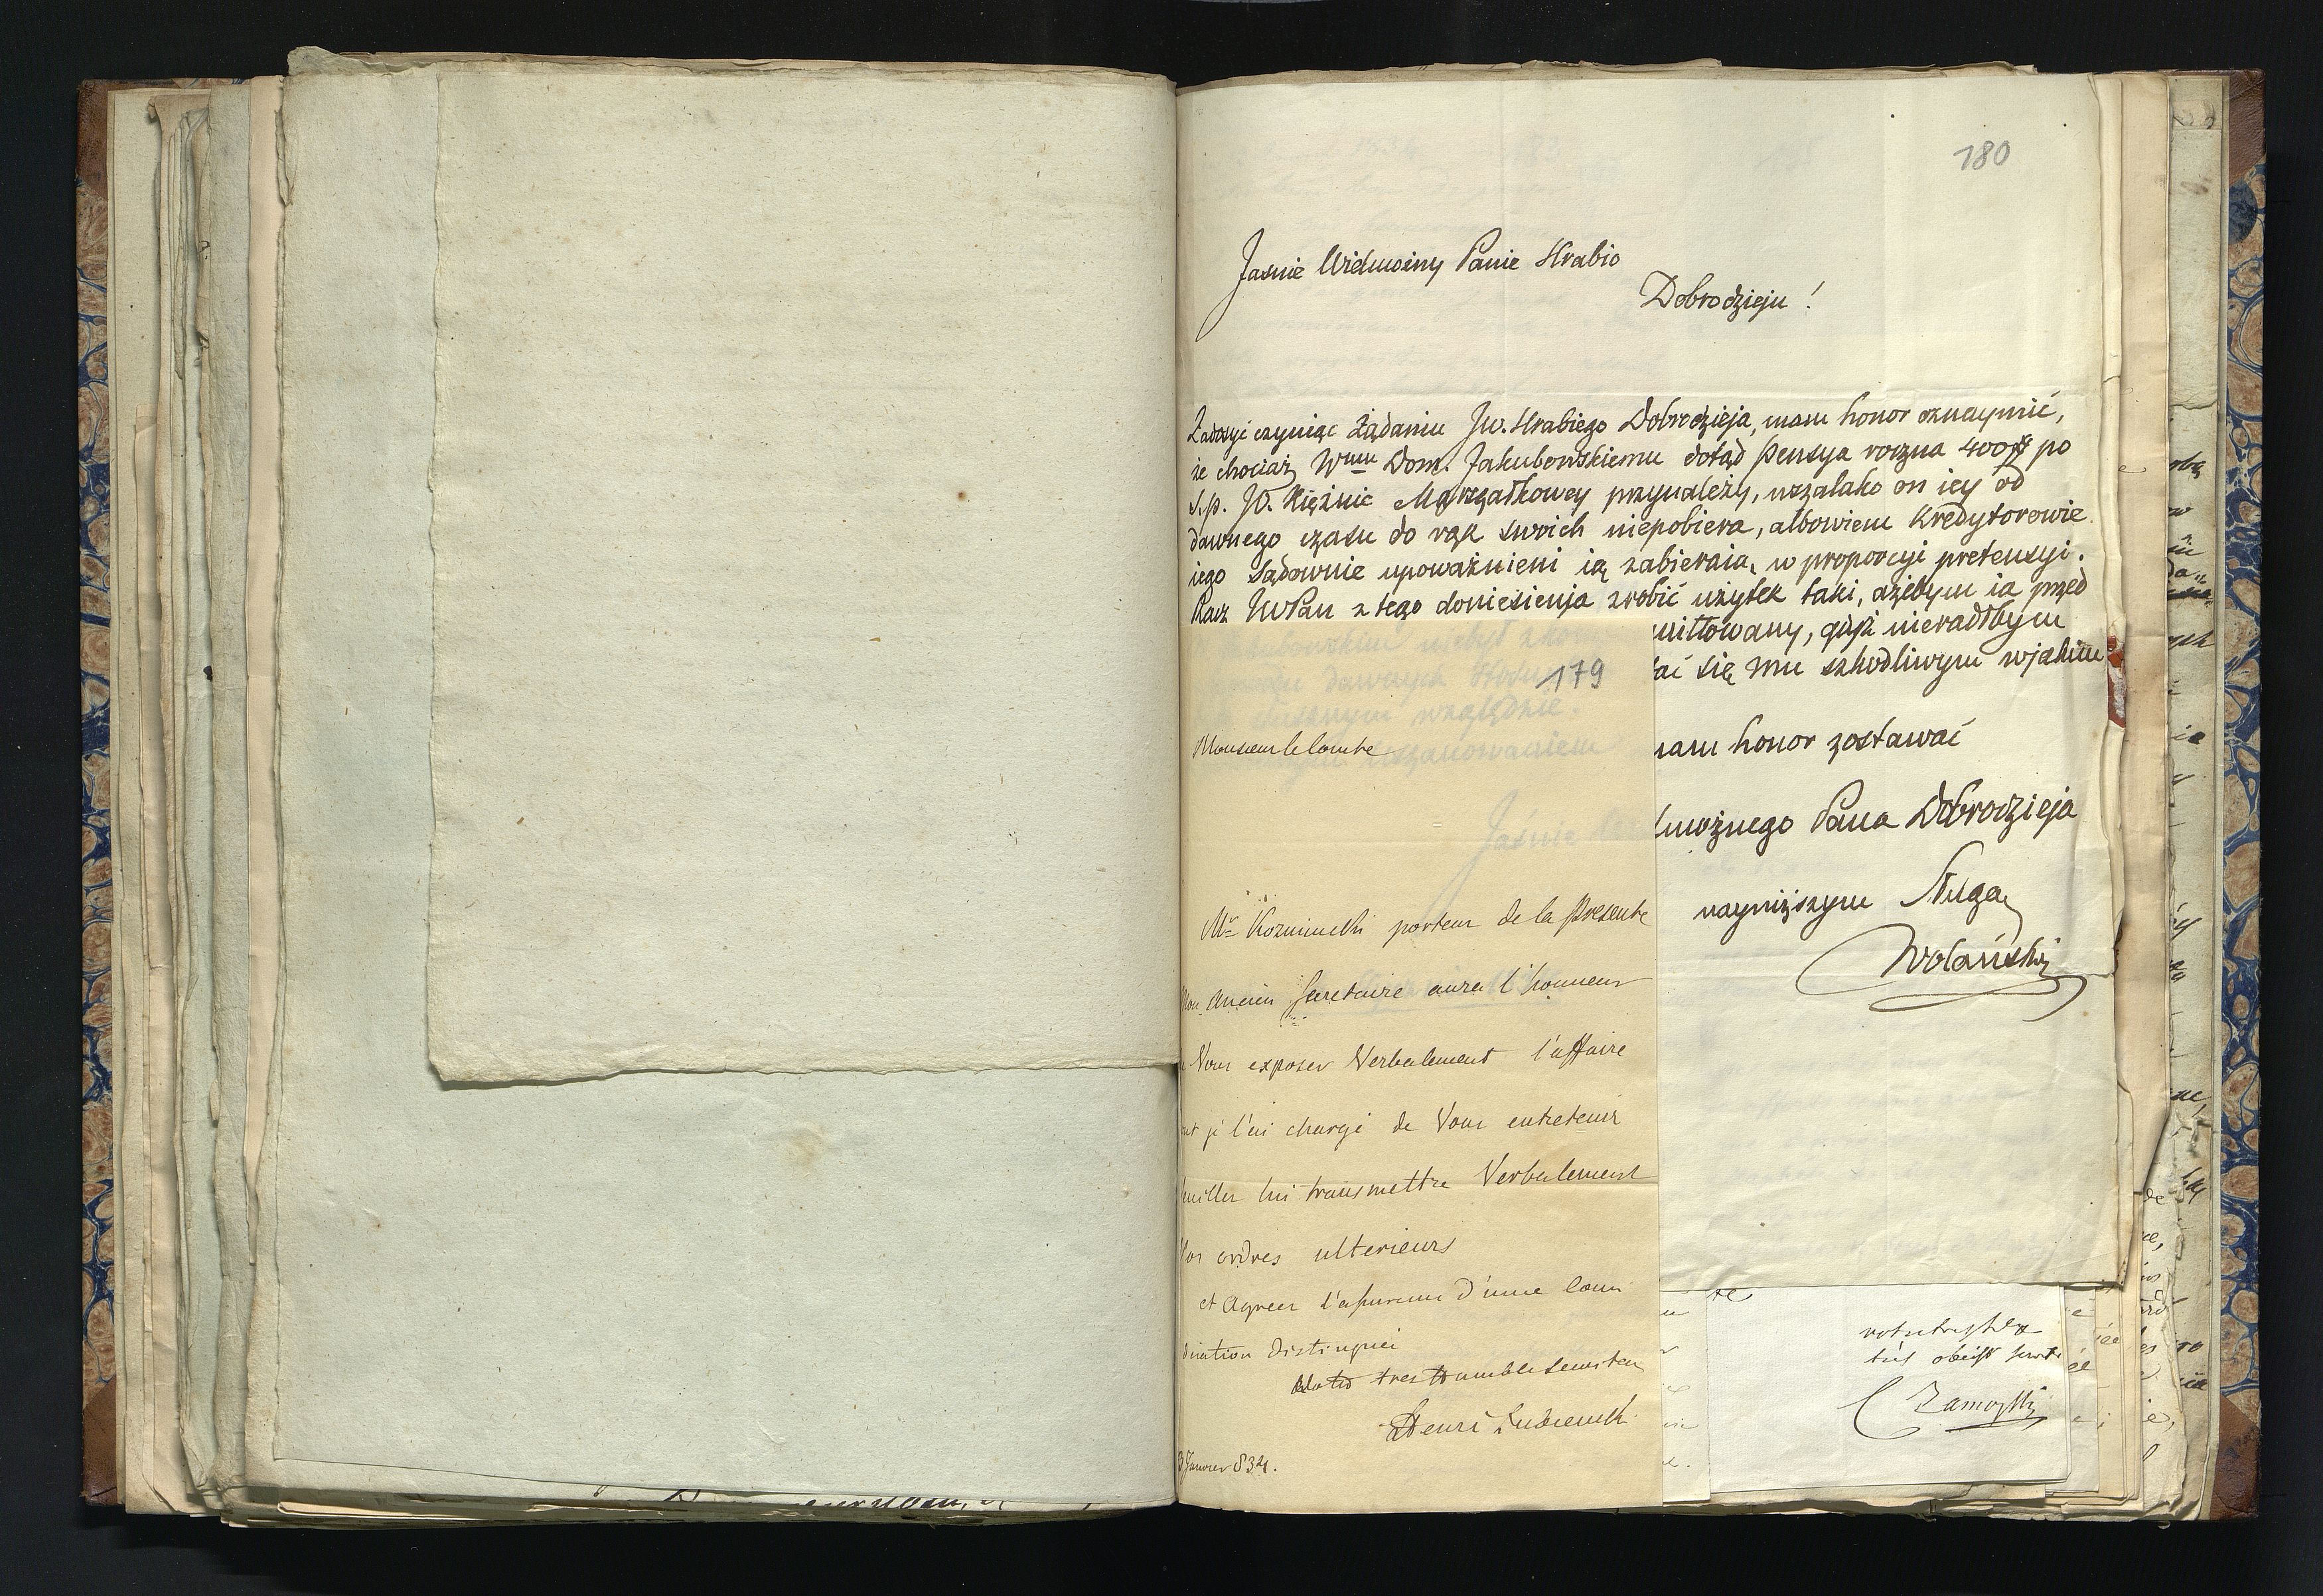 180
Jasnie Wielmożny Panie Hrabio
Dobrodzieju!
Zadosyć czyniąc żądaniu Jw. Hrabiego Dobrodzieja, mam honor oznaymić,
że chociaż Wmu Dom. Jakubowskiemu dotąd pensya roczna 400 po
s.p. JO. Xiężnie Marszałkowey przynależy, wszelako on iey od
dawnego czasu do rąk swoich niepobiera, albowiem Kredytorowie
iego sądownie upoważnieni ią zabieraią, w proporcyi pretensyi.
Racz JWPan z tego doniesienia zrobić użytek taki, ażebym ia przed
mittowany, gdyż nieradbym
ać się mu szkodliwym w jakim
mam honor zostawać
lmożnego Pana Dobrodzieja
nayniższym Sługą
Wolański
179
Monsieur le Comte
Mr Kozmienski porteur de la presente
Mon ancien Secretaire aura l'honneur
Vous exposer Verbalement l'affaire
nt je l'ai chargé de Vous entretenir
euillez lui transmettre Verbalement
Vos ordres ulterieurs
et Agreer l'assurance d'une Consi
deration distinguei
Votre tres humble Serviteur
Henri Lubienski
3 Janvier 834.
te
votre très
très obéisst servt
C Zamoyski